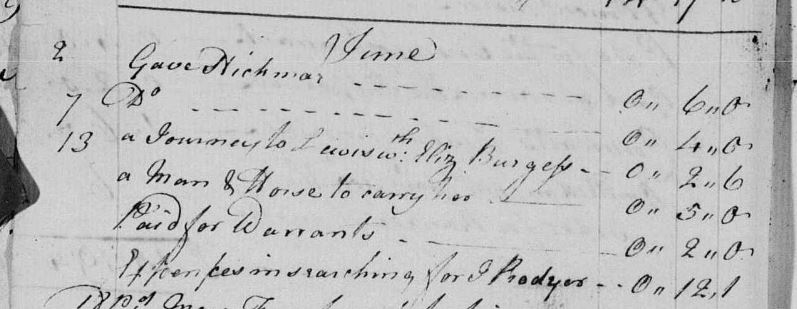 June
2 Gave Hickmar - - - - - - 0,, 6,, 0
7 Do - - - - - - 0,, 4,, 0
13 a Journey to Lewis wth: Eliz Burgess - - 0,, 2,, 6
a Man & Horse to carry her - - 0,, 5,, 0
Paid for Warrants - - - - 0,, 2,, 0
Expences in searching for J Rodyer - - 0,, 12,, 1
18 Pd